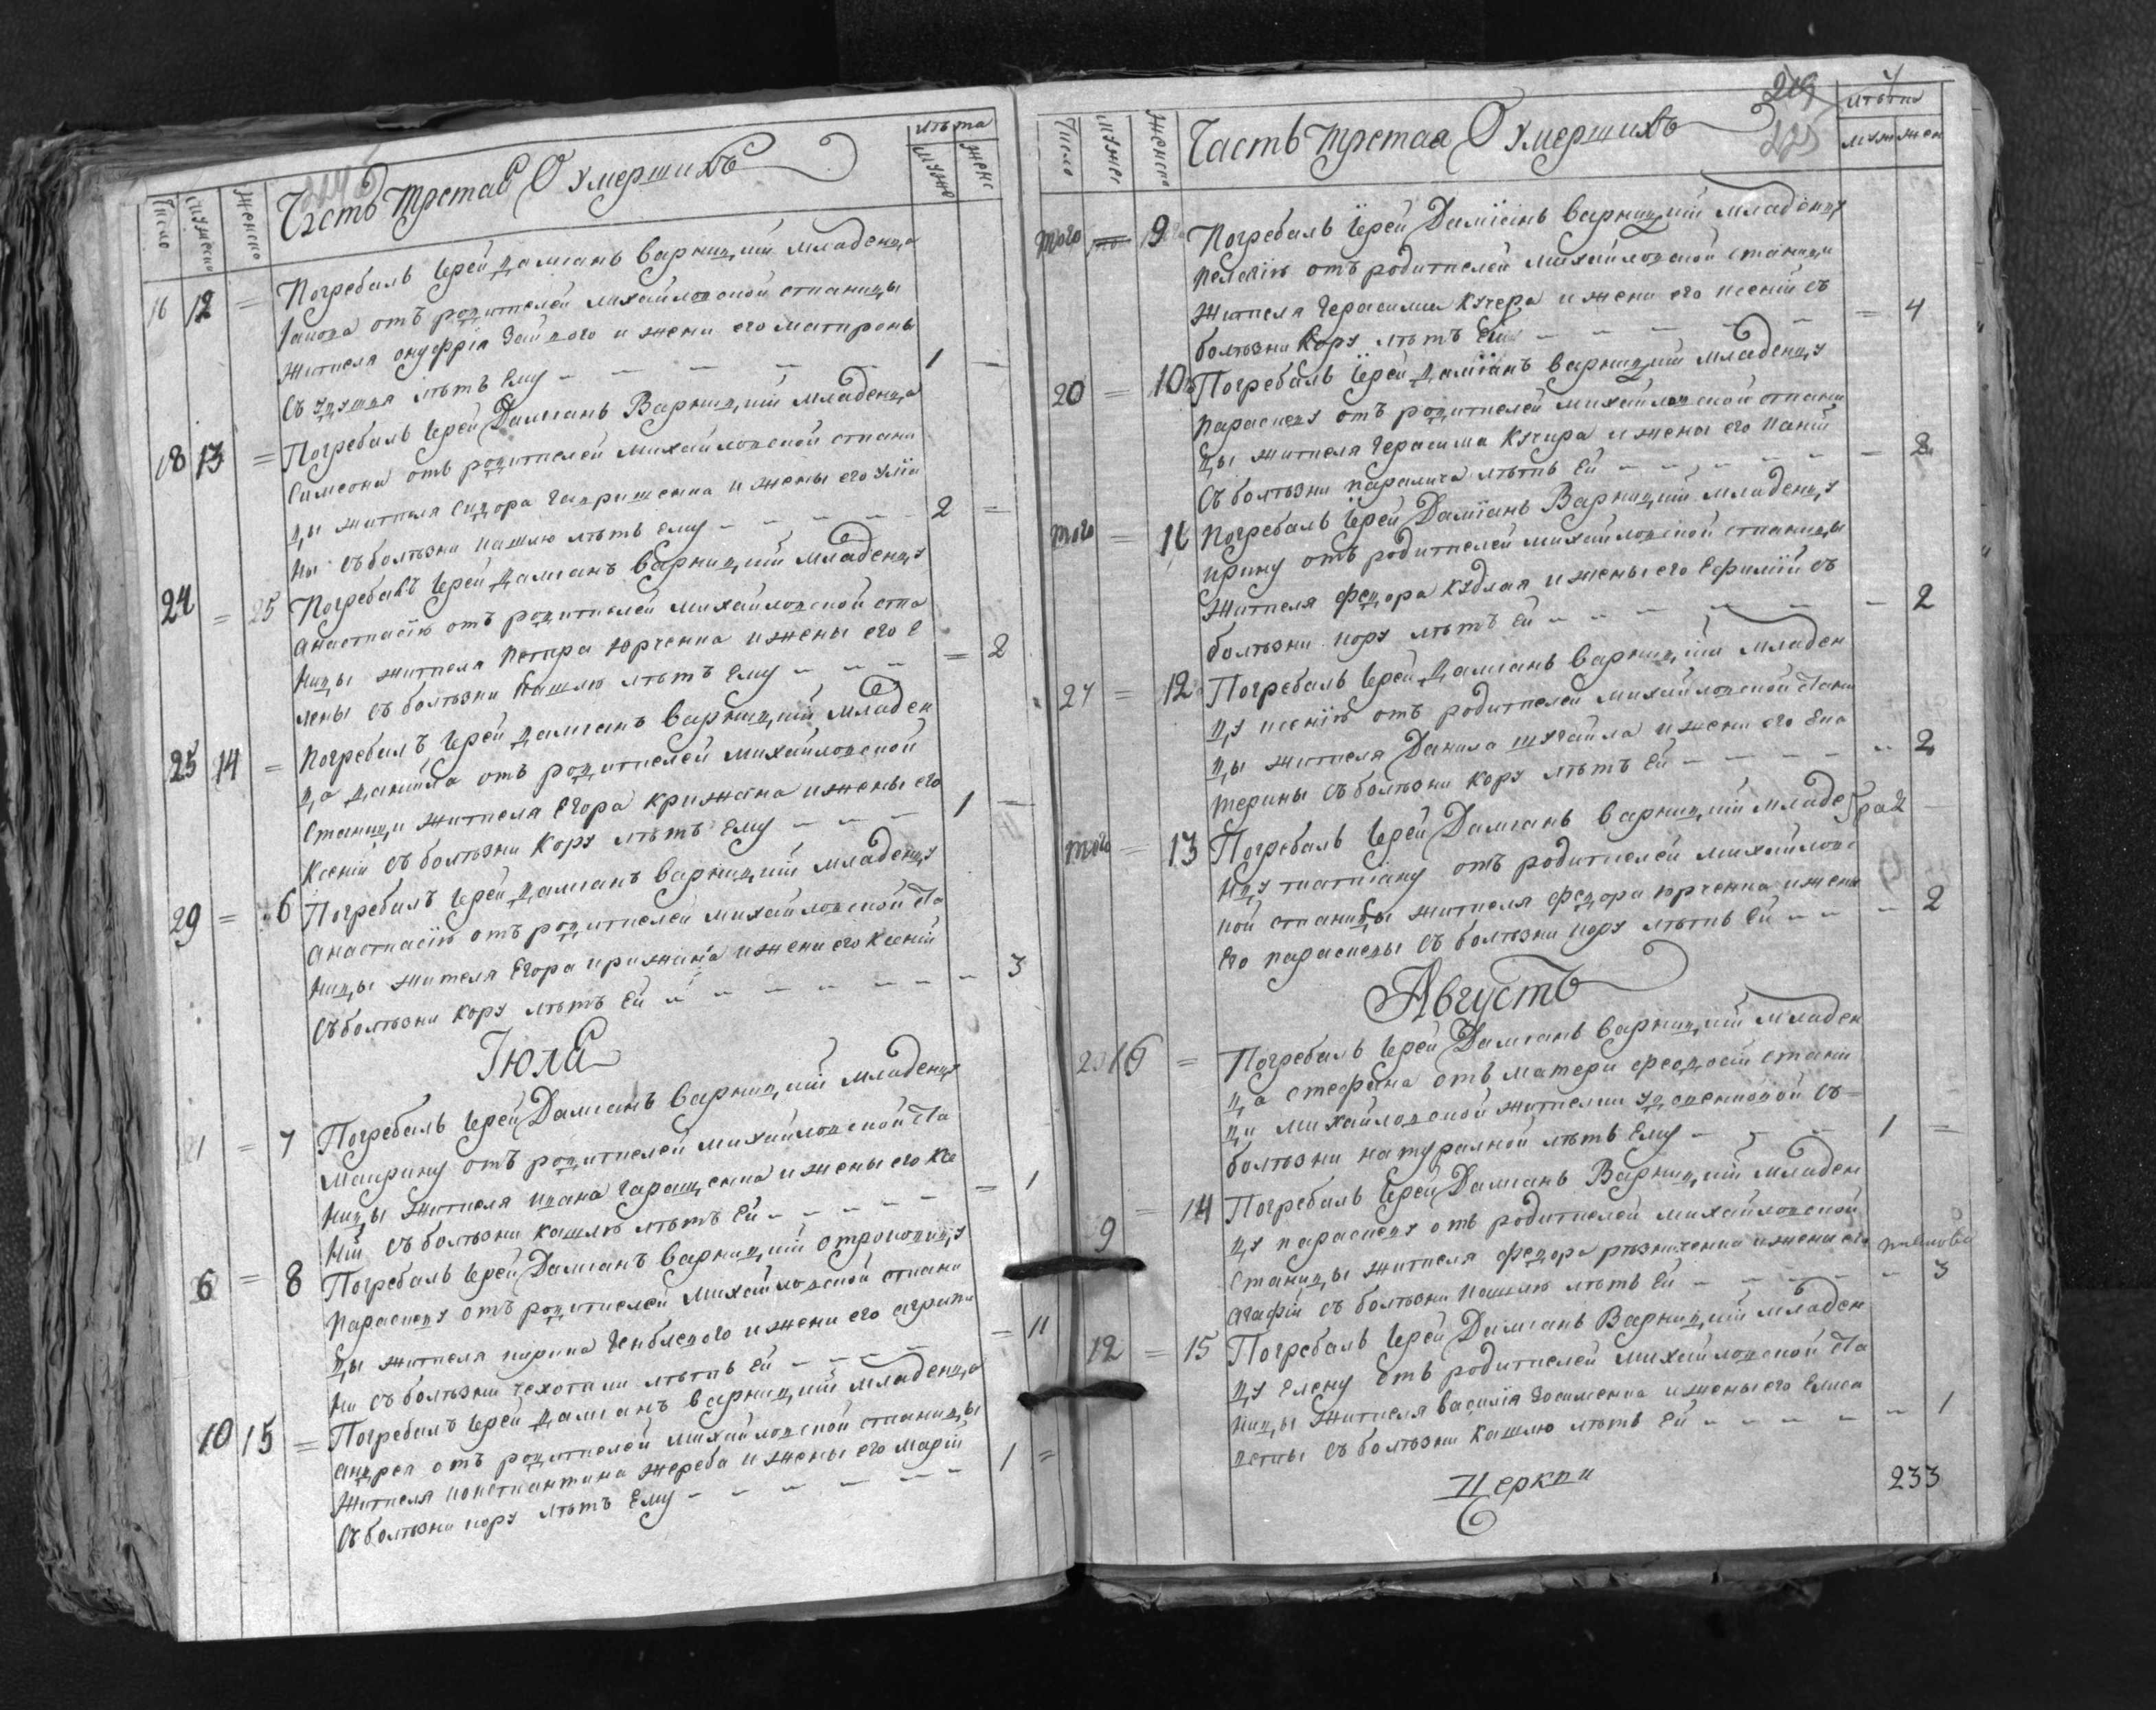 Часть третая О умершихъ
лѣта
число мужеска женска
муже женс
16 12 = Погребалъ Іерей Даміанъ Варницкій младенца
Іакова отъ родителей Михайловской станицы
жителя Онуфрія и жени его Матрони
съ удушя лѣтъ ему 1 —
18 13 = Погребалъ Іерей Даміанъ Варницкій младенца
Симеона отъ родителей Михайловской стани
цы жителя Сидора Гавришенка и жены его Улїя
ны съ болѣзни кашлю лѣтъ ему 2 =
24 = Погребавъ Іерей Даміанъ Варницкій младенцу
Анастасїю отъ родителей Михайловской ста
ницы жителя Петра Юрченка и жены его Е
лены съ болѣзни кашлю лѣтъ ему = 2
25 14 = Погребалъ Іерей Даміанъ Варницкій младен
ца Данїила отъ родителей Михайловской
станици жителя Егора Крижана и жены его
Ксеніи съ болѣзни кору лѣтъ ему 1 —
29 = 6 Погребалъ Іерей Даміанъ Варницкій младенцу
Анастасїю отъ родителей Михайловской ста
ницы жителя Егора Крижана и жени его Ксеніи
съ болѣзни кору лѣтъ ей 3
Іюля
1 = 7 Погребалъ Іерей Даміанъ Варницкій младенцу
Маврину отъ родителей Михайловской ста
ницы жителя Ивана Гаращенка и жены его Ксе
ніи съ болѣзни кашлю лѣтъ ей = 1
6 = 8 Погребалъ Іерей Даміанъ Варницкій отроковицу
Параскеву отъ родителей Михайловской стани
цы жителя Кирила и жени его Агрипи
ни съ болѣзни чехотки лѣтъ ей = 11
10 15 = Погребалъ Іерей Даміанъ Варницкій младенца
Андрея отъ родителей Михайловской станицы
жителя Константина Жереба и жены его Маріи
съ болѣзни кору лѣтъ ему 1 =
219
225
Часть третая О умершихъ
число мужес женска
лѣта
муж жен
того 9 Погребалъ Іерей Даміанъ Варницкій младенцу
Пелагїю отъ родителей Михайловской станици
жителя Герасима Кучера и жени его Ксеніи съ
болѣзни кору лѣтъ ей = 4
20 = 10 Погребалъ Іерей Даміанъ Варницкій младенцу
Параскеву отъ родителей Михайловской стани
цы жителя Герасима Кучира и жены его
съ болѣзни паралича лѣтъ ей — 2
того = 11 Погребалъ Іерей Даміанъ Варницкій младенцу
Ирину отъ родителей Михайловской станицы
жителя Федора Кудлая и жены его Ефиміи съ
болѣзни кору лѣтъ ей — 2
27 = 12 Погребалъ Іерей Даміанъ Варницкій младен
цу Ксенїю отъ родителей Михайловской стани
цы жителя Данила и жени его Ека
терины съ болѣзни кору лѣтъ ей 2
того = 13 Погребалъ Іерей Даміанъ Варницкій младе
нцу Татіану отъ родителей Михайловс
кой станицы жителя Федора Юрченка и жени
его Параскевы съ болѣзни кору лѣтъ ей — 2
Августъ
16 = Погребалъ Іерей Даміанъ Варницкій младен
ца Стефана отъ матери Феодосіи стани
ци Михайловской жителки съ
болѣзни натуралной лѣтъ ему 1 =
9 = 14 Погребалъ Іерей Даміанъ Варницкій младен
цу Параскеву отъ родителей Михайловской
станицы жителя Федора Рѣзниченка и жени его
Агафіи съ болѣзни кашлю лѣтъ ей — 3
12 = 15 Погребалъ Іерей Даміанъ Варницкій младен
цу Елену отъ родителей Михайловской ста
ницы жителя Василїя Зосименка и жены его Елиса
веты съ болѣзни кашлю лѣтъ ей — 1
Церкви
233